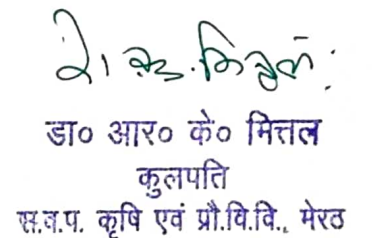 रा. क. मित्तल
डा० आर० के० मित्तल
कुलपति
स.व.प. कृषि एवं प्रौ.वि.वि., मेरठ